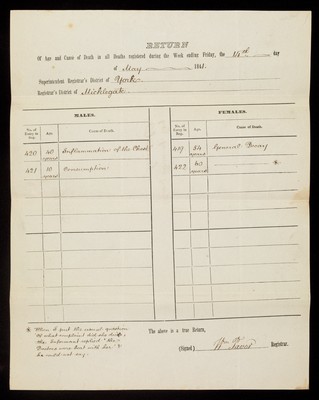 RETURN
Of Age and Cause of Death in all Deaths registered during the Week ending Friday, the 14th day
of May 1841.
Superintendent Registrar's District of York
Registrar's District of Micklegate
MALES.
FEMALES.
No. of Entry in Reg.
Age.
Cause of Death.
No. of Entry in Reg.
Age.
Cause of Death.
420 40 years Inflammation of the Chest
419 84 years General Decay
421 10 years Consumption
422 40 years
When I put the usual question
of what complaint did she die,
the Informant replied "the
Doctors were best with her" &
he could not say.
The above is a true Return,
(Signed)
Registrar.